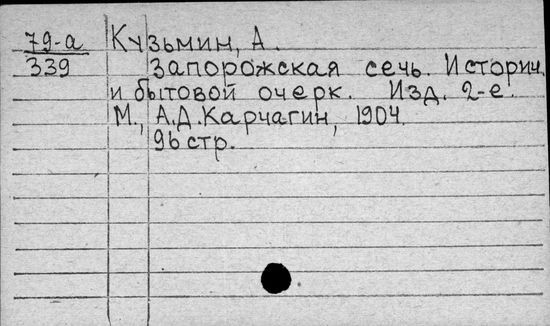 79-а Кузьмин, А.
339 Запорожская сечь. Историч.
и бытовой очерк. Изд. 2-е.
М., А.Д.Карчагин, 1904.
96 стр.